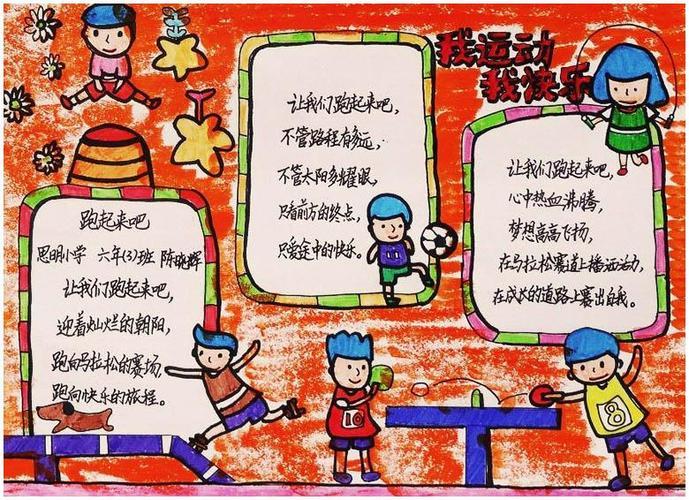 我运动
我快乐
跑起来吧
思明小学 六年(3)班 陈晓辉
让我们跑起来吧，
迎着灿烂的朝阳，
跑向马拉松的赛场，
跑向快乐的旅程。
让我们跑起来吧，
不管路程有多远，
不管太阳多耀眼，
只看前方的终点，
只爱途中的快乐。
让我们跑起来吧，
心中热血沸腾，
梦想高高飞扬，
在马拉松赛道上播洒活力，
在成长的道路上赛出自我。
11
10
8